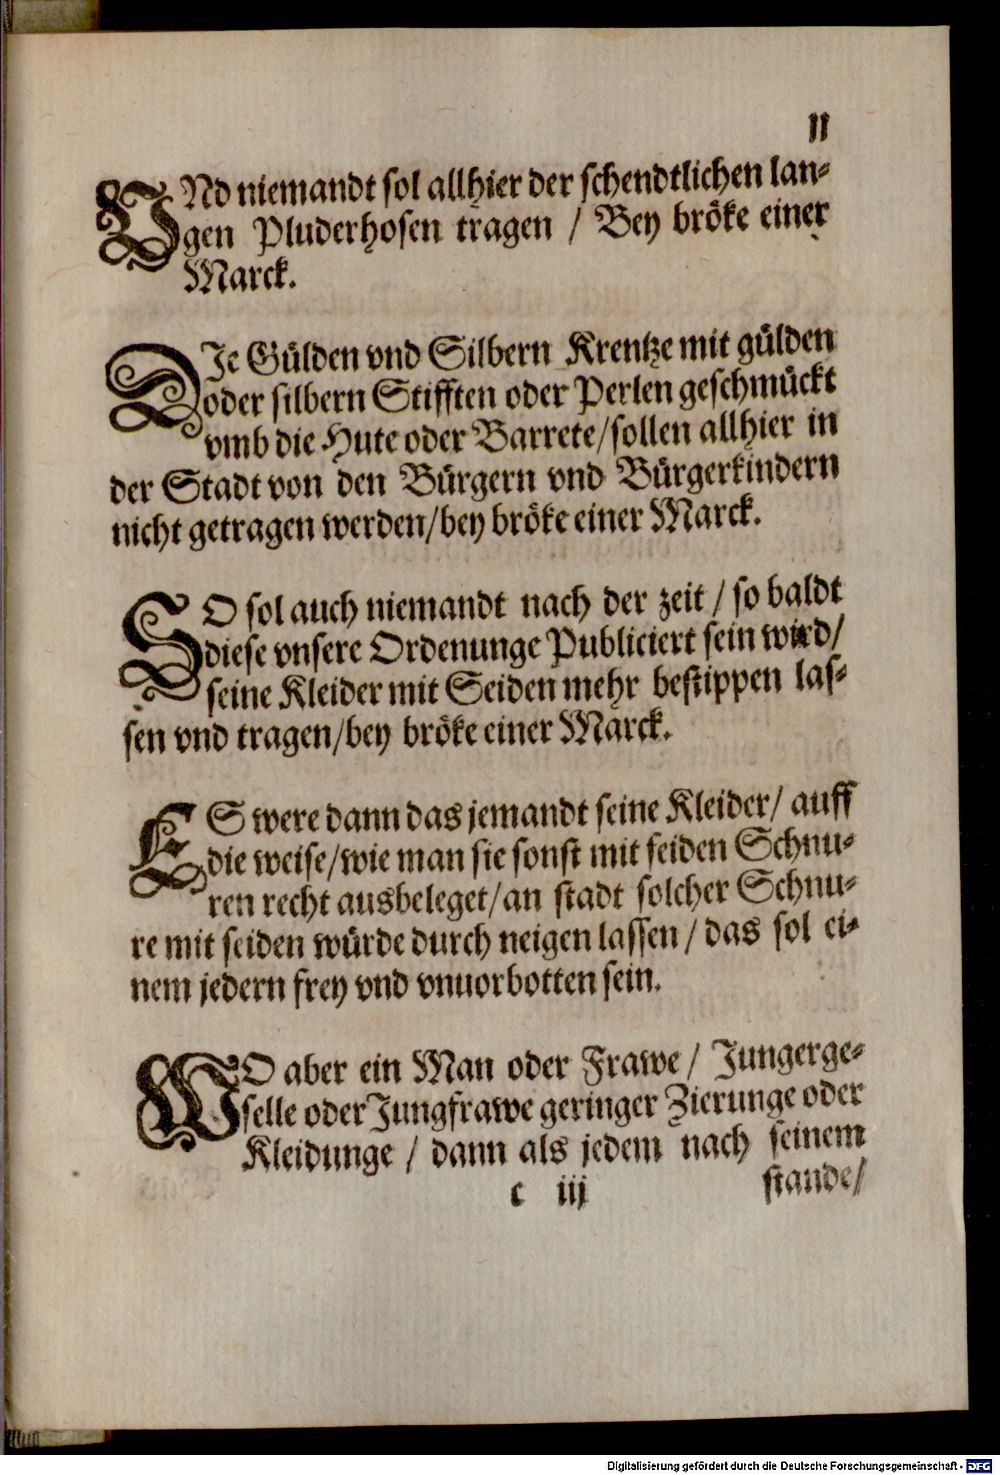 11
VNd niemandt sol allhier der schendtlichen lan-
gen Pluderhosen tragen / Bey bröke einer
Marck.
DJe Gülden vnd Silbern Krentze mit gülden
oder silbern Stifften oder Perlen geschmückt
vmb die Hute oder Barrete/sollen allhier in
der Stadt von den Bürgern vnd Bürgerkindern
nicht getragen werden/bey bröke einer Marck.
SO sol auch niemandt nach der zeit / so baldt
diese vnsere Ordenunge Publiciert sein wird/
seine Kleider mit Seiden mehr bestippen las-
sen vnd tragen/bey bröke einer Marck.
ES were dann das jemandt seine Kleider/ auff
die weise/wie man sie sonst mit seiden Schnu-
ren recht ausbeleget/an stadt solcher Schnu-
re mit seiden würde durch neigen lassen / das sol ei-
nem jedern frey vnd vnuorbotten sein.
WO aber ein Man oder Frawe / Jungerge-
selle oder Jungfrawe geringer Zierunge oder
Kleidunge / dann als jedem nach seinem
c iij
stande/
Digitalisierung gefördert durch die Deutsche Forschungsgemeinschaft - DFG